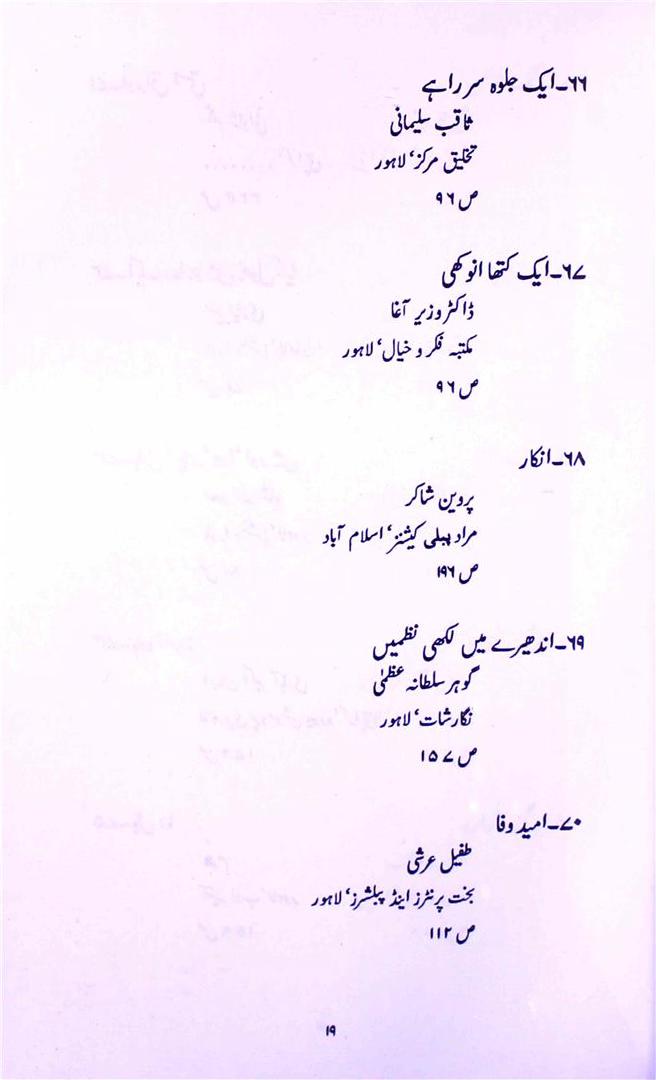 ۶۶۔ایک جلوہ سر راہے
ثاقب سلیمانی
تخلیق مرکز‘ لاہور
ص ۹۶
۶۷۔ایک کتھا انوکھی
ڈاکٹر وزیر آغا
مکتبہ فکر و خیال‘ لاہور
ص ۹۶
۶۸۔انکار
پروین شاکر
مراد پبلی کیشنز‘ اسلام آباد
ص ۱۹۶
۶۹۔اندھیرے میں لکھی نظمیں
گوہر سلطانہ عظمیٰ
نگارشات‘ لاہور
ص ۱۵۷
۷۰۔امید وفا
طفیل عرشی
بخت پرنٹرز اینڈ پبلشرز‘ لاہور
ص ۱۱۲
۱۹